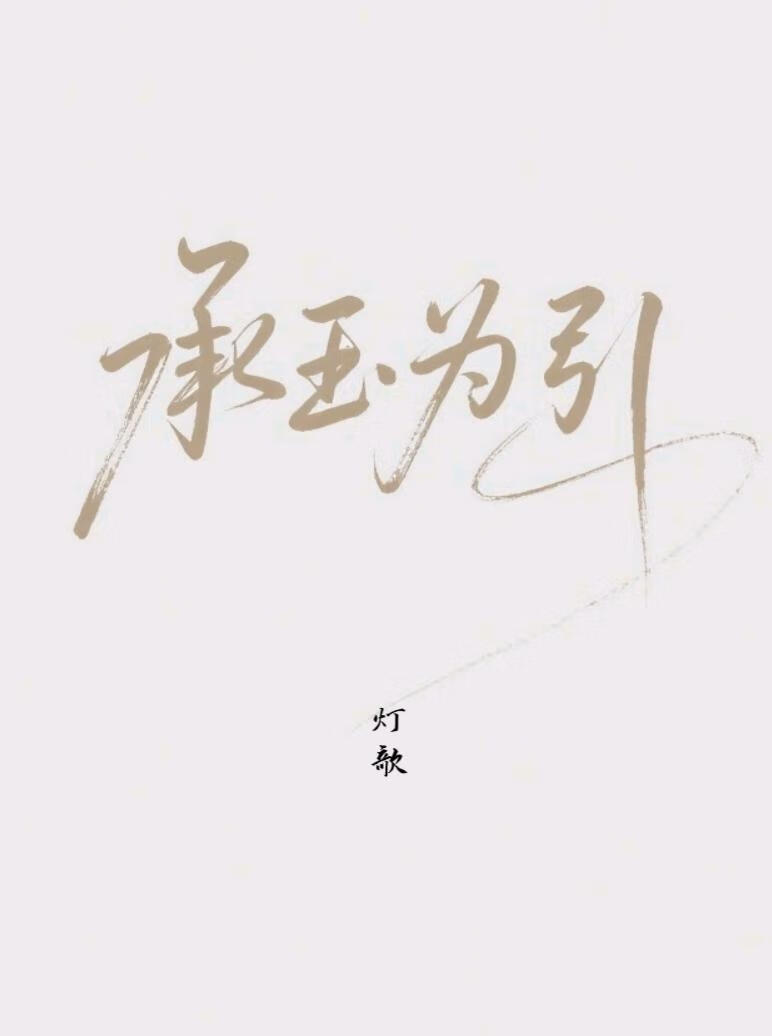 承玉为引
灯
歌